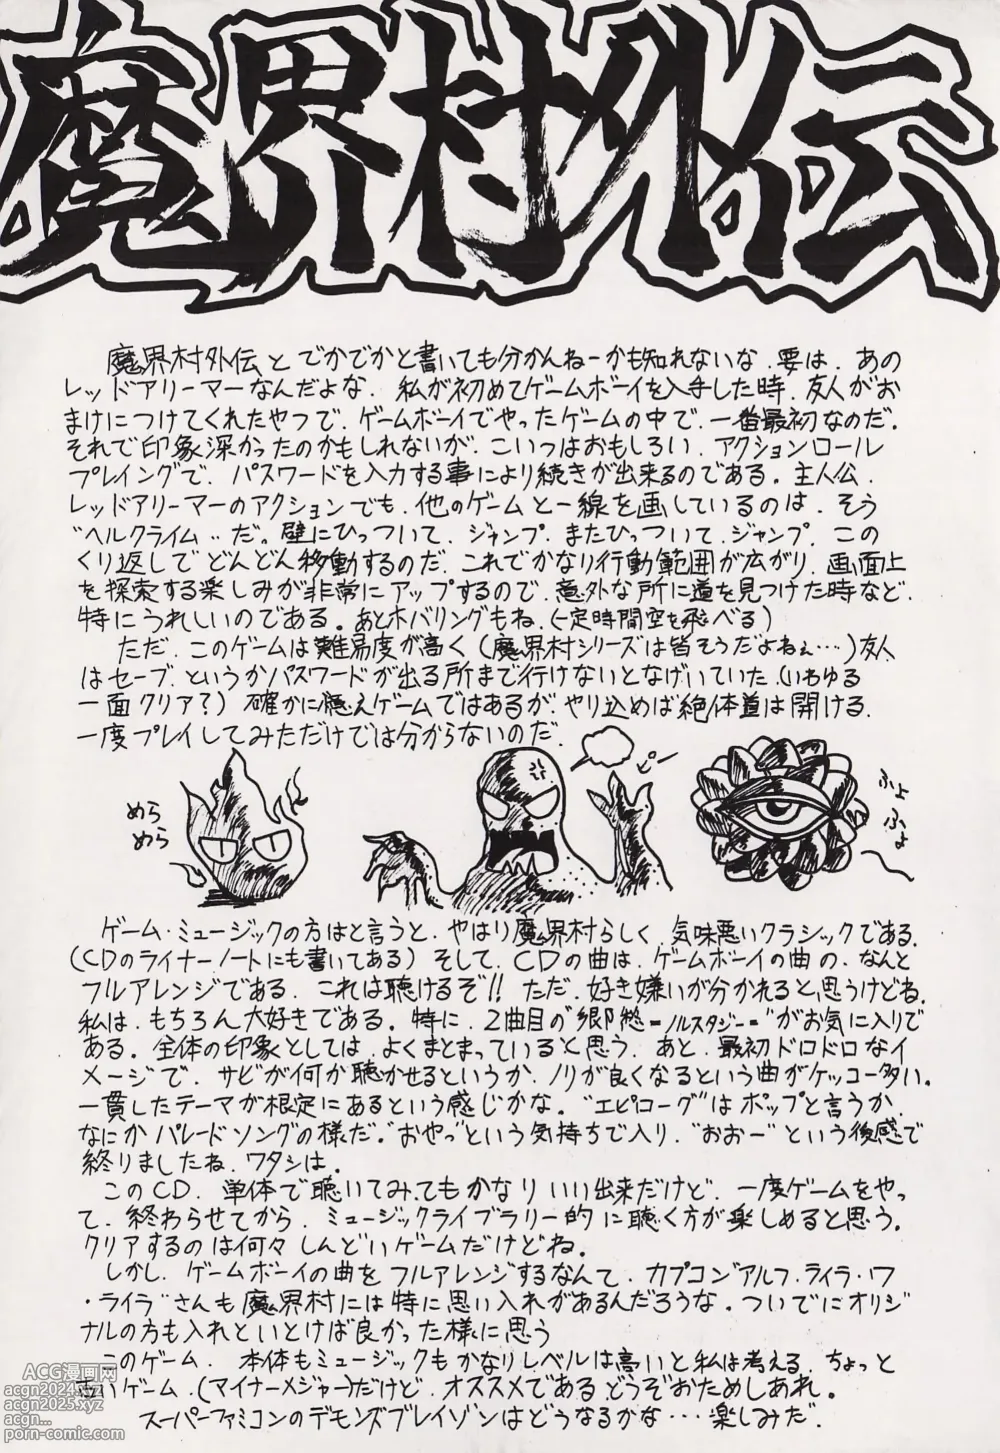 魔界村外伝
魔界村外伝とでかでかと書いても分かんねーかも知れないな。要は、あの
レッドアリーマーなんだよな。私が初めてゲームボーイを入手した時、友人がお
まけにつけてくれたやつで、ゲームボーイでやったゲームの中で、一番最初なのだ。
それで印象深かったのかもしれないが、こいつはおもしろい。アクションロール
プレイングで、パスワードを入力する事により続きが出来るのである。主人公、
レッドアリーマーのアクションでも、他のゲームと一線を画しているのは、そう
"ヘルクライム"だ。壁にひっついて、ジャンプ、またひっついて、ジャンプ、この
くり返しでどんどん移動するのだ。これでかなり行動範囲が広がり、画面上
を探索する楽しみが非常にアップするので、意外な所に道を見つけた時など、
特にうれしいのである。あとホバリングもね。(一定時間空を飛べる)
ただ、このゲームは難易度が高く(魔界村シリーズは皆そうだよねぇ…)友人
はセーブ、というかパスワードが出る所まで行けないとなげいていた。(いわゆる
一面クリア?)確かに憶えゲームではあるが、やり込めば絶体道は開ける。
一度プレイしてみただけでは分からないのだ。
めら
めら
ふよ
ふよ
ゲーム・ミュージックの方はと言うと、やはり魔界村らしく、気味悪いクラシックである。
(CDのライナーノートにも書いてある)そして、CDの曲は、ゲームボーイの曲の、なんと
フルアレンジである。これは聴けるぞ!!ただ、好き嫌いが分かれると思うけどね。
私は、もちろん大好きである。特に、2曲目の"郷愁=ノルスタジー="がお気に入りで
ある。全体の印象としては、よくまとまっていると思う。あと、最初ドロドロなイ
メージで、サビが何か聴かせるというか、ノリが良くなるという曲がケッコー多い。
一貫したテーマが根定にあるという感じかな。"エピローグ"はポップと言うか、
なにかパレードソングの様だ。"おやっ"という気持ちで入り、"おおー"という後感で
終りましたね、ワタシは。
このCD、単体で聴いてみてもかなりいい出来だけど、一度ゲームをやっ
て、終わらせてから、ミュージックライブラリー的に聴く方が楽しめると思う。
クリアするのは何々しんどいゲームだけどね。
しかし、ゲームボーイの曲をフルアレンジするなんて、カプコン"アルフ・ライラ・ワ
・ライラ"さんも魔界村には特に思い入れがあるんだろうな。ついでにオリジ
ナルの方も入れといとけば良かった様に思う
このゲーム、本体もミュージックもかなりレベルは高いと私は考える。ちょっと
古いゲーム、(マイナーメジャー)だけど、オススメであるどうぞおためしあれ。
スーパーファミコンのデモンズブレイゾンはどうなるかな…楽しみだ。
ACG漫画网
acgn2024.xyz
acgn2025.xyz
acgn...
porn-comic.com